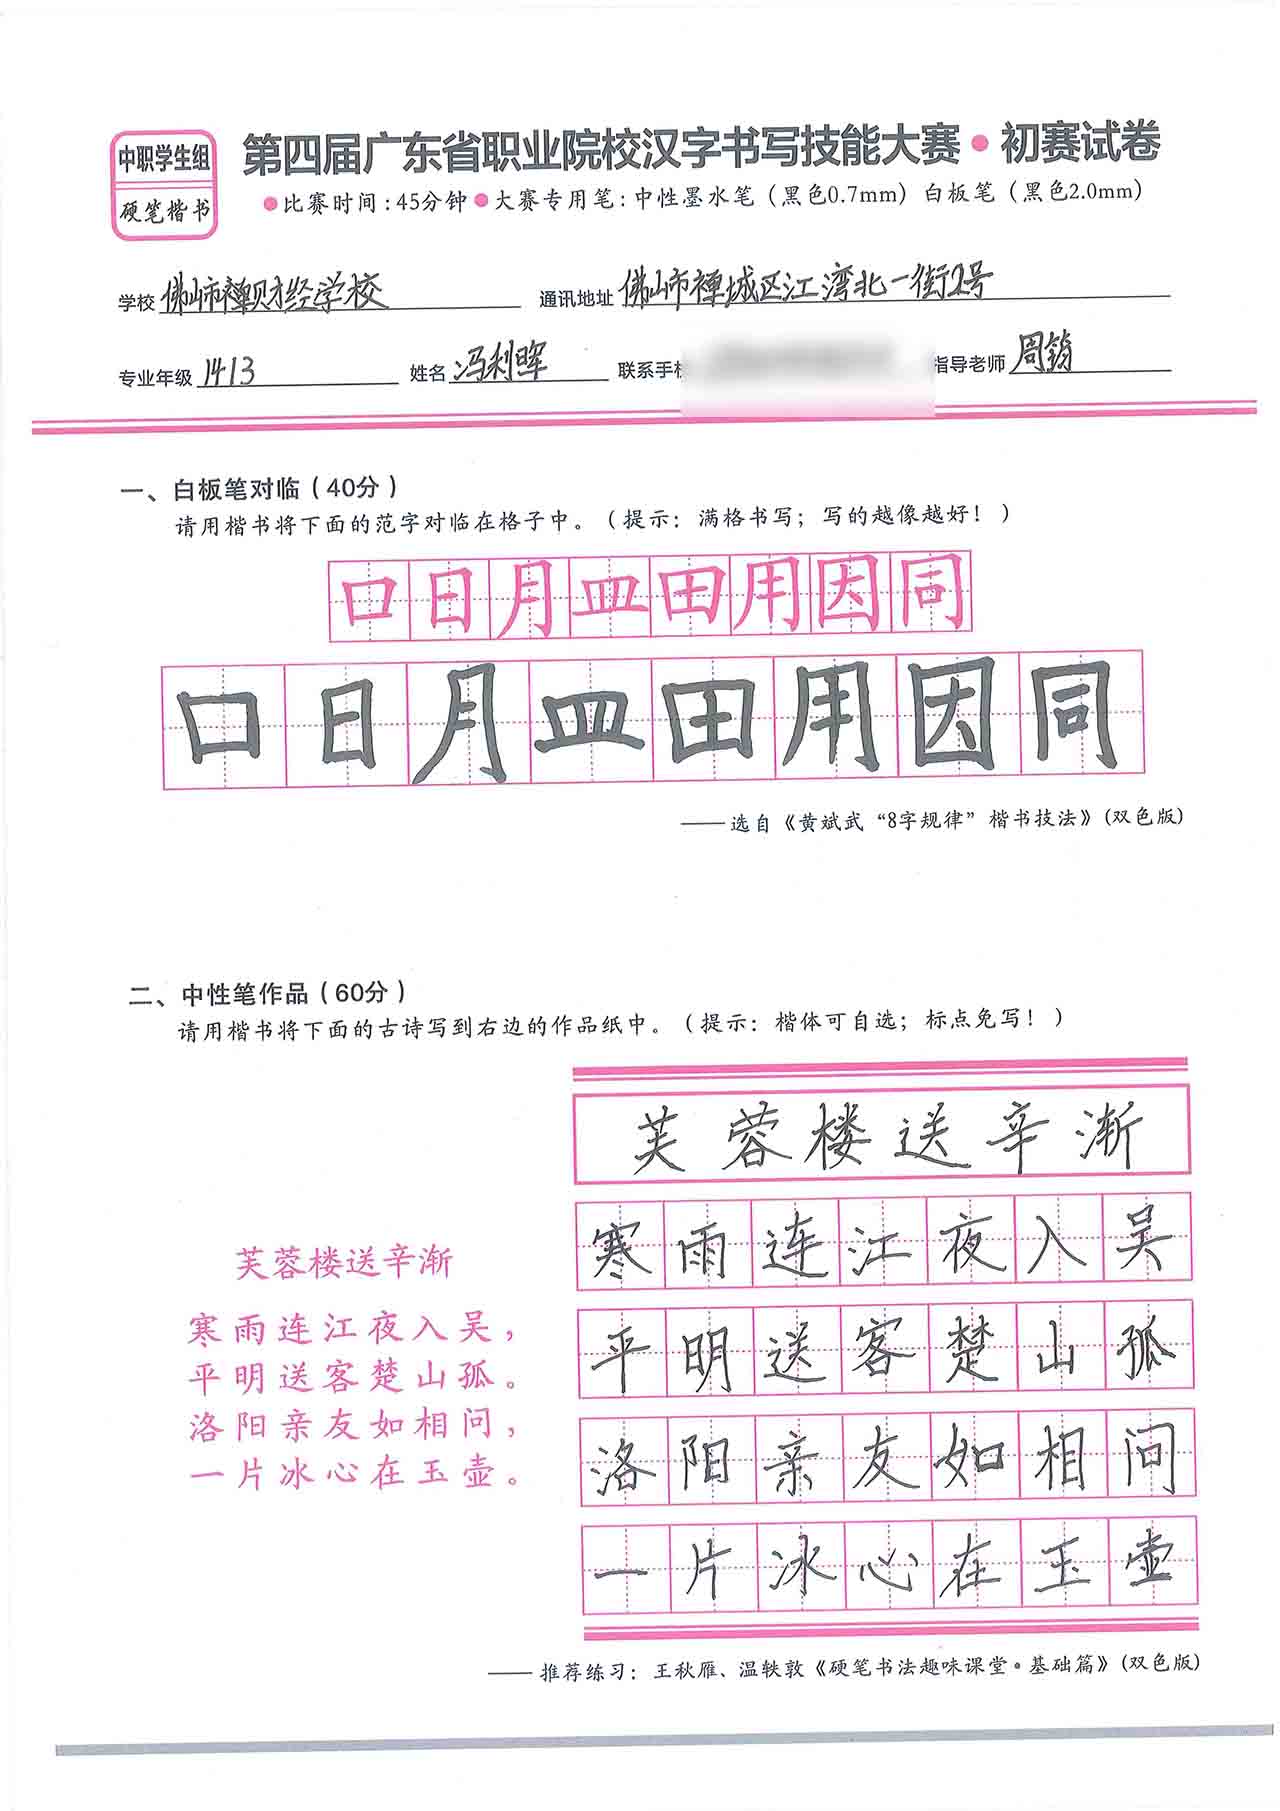 中职学生组
硬笔楷书
第四届广东省职业院校汉字书写技能大赛·初赛试卷
●比赛时间:45分钟●大赛专用笔:中性墨水笔（黑色0.7mm）白板笔（黑色2.0mm）
学校 佛山市禅财经学校 通讯地址 佛山市禅城区江湾北一街2号
专业年级 1413 姓名 冯利晖 联系手机 指导老师 周筠
一、白板笔对临（40分）
请用楷书将下面的范字对临在格子中。（提示：满格书写；写的越像越好！）
口日月皿田用因同
口日月皿田用因同
——选自《黄斌武“8字规律”楷书技法》(双色版)
二、中性笔作品（60分）
请用楷书将下面的古诗写到右边的作品纸中。（提示：楷体可自选；标点免写！）
芙蓉楼送辛渐
寒雨连江夜入吴，
平明送客楚山孤。
洛阳亲友如相问，
一片冰心在玉壶。
芙蓉楼送辛渐
寒雨连江夜入吴
平明送客楚山孤
洛阳亲友如相问
一片冰心在玉壶
——推荐练习：王秋雁、温轶敦《硬笔书法趣味课堂·基础篇》(双色版)